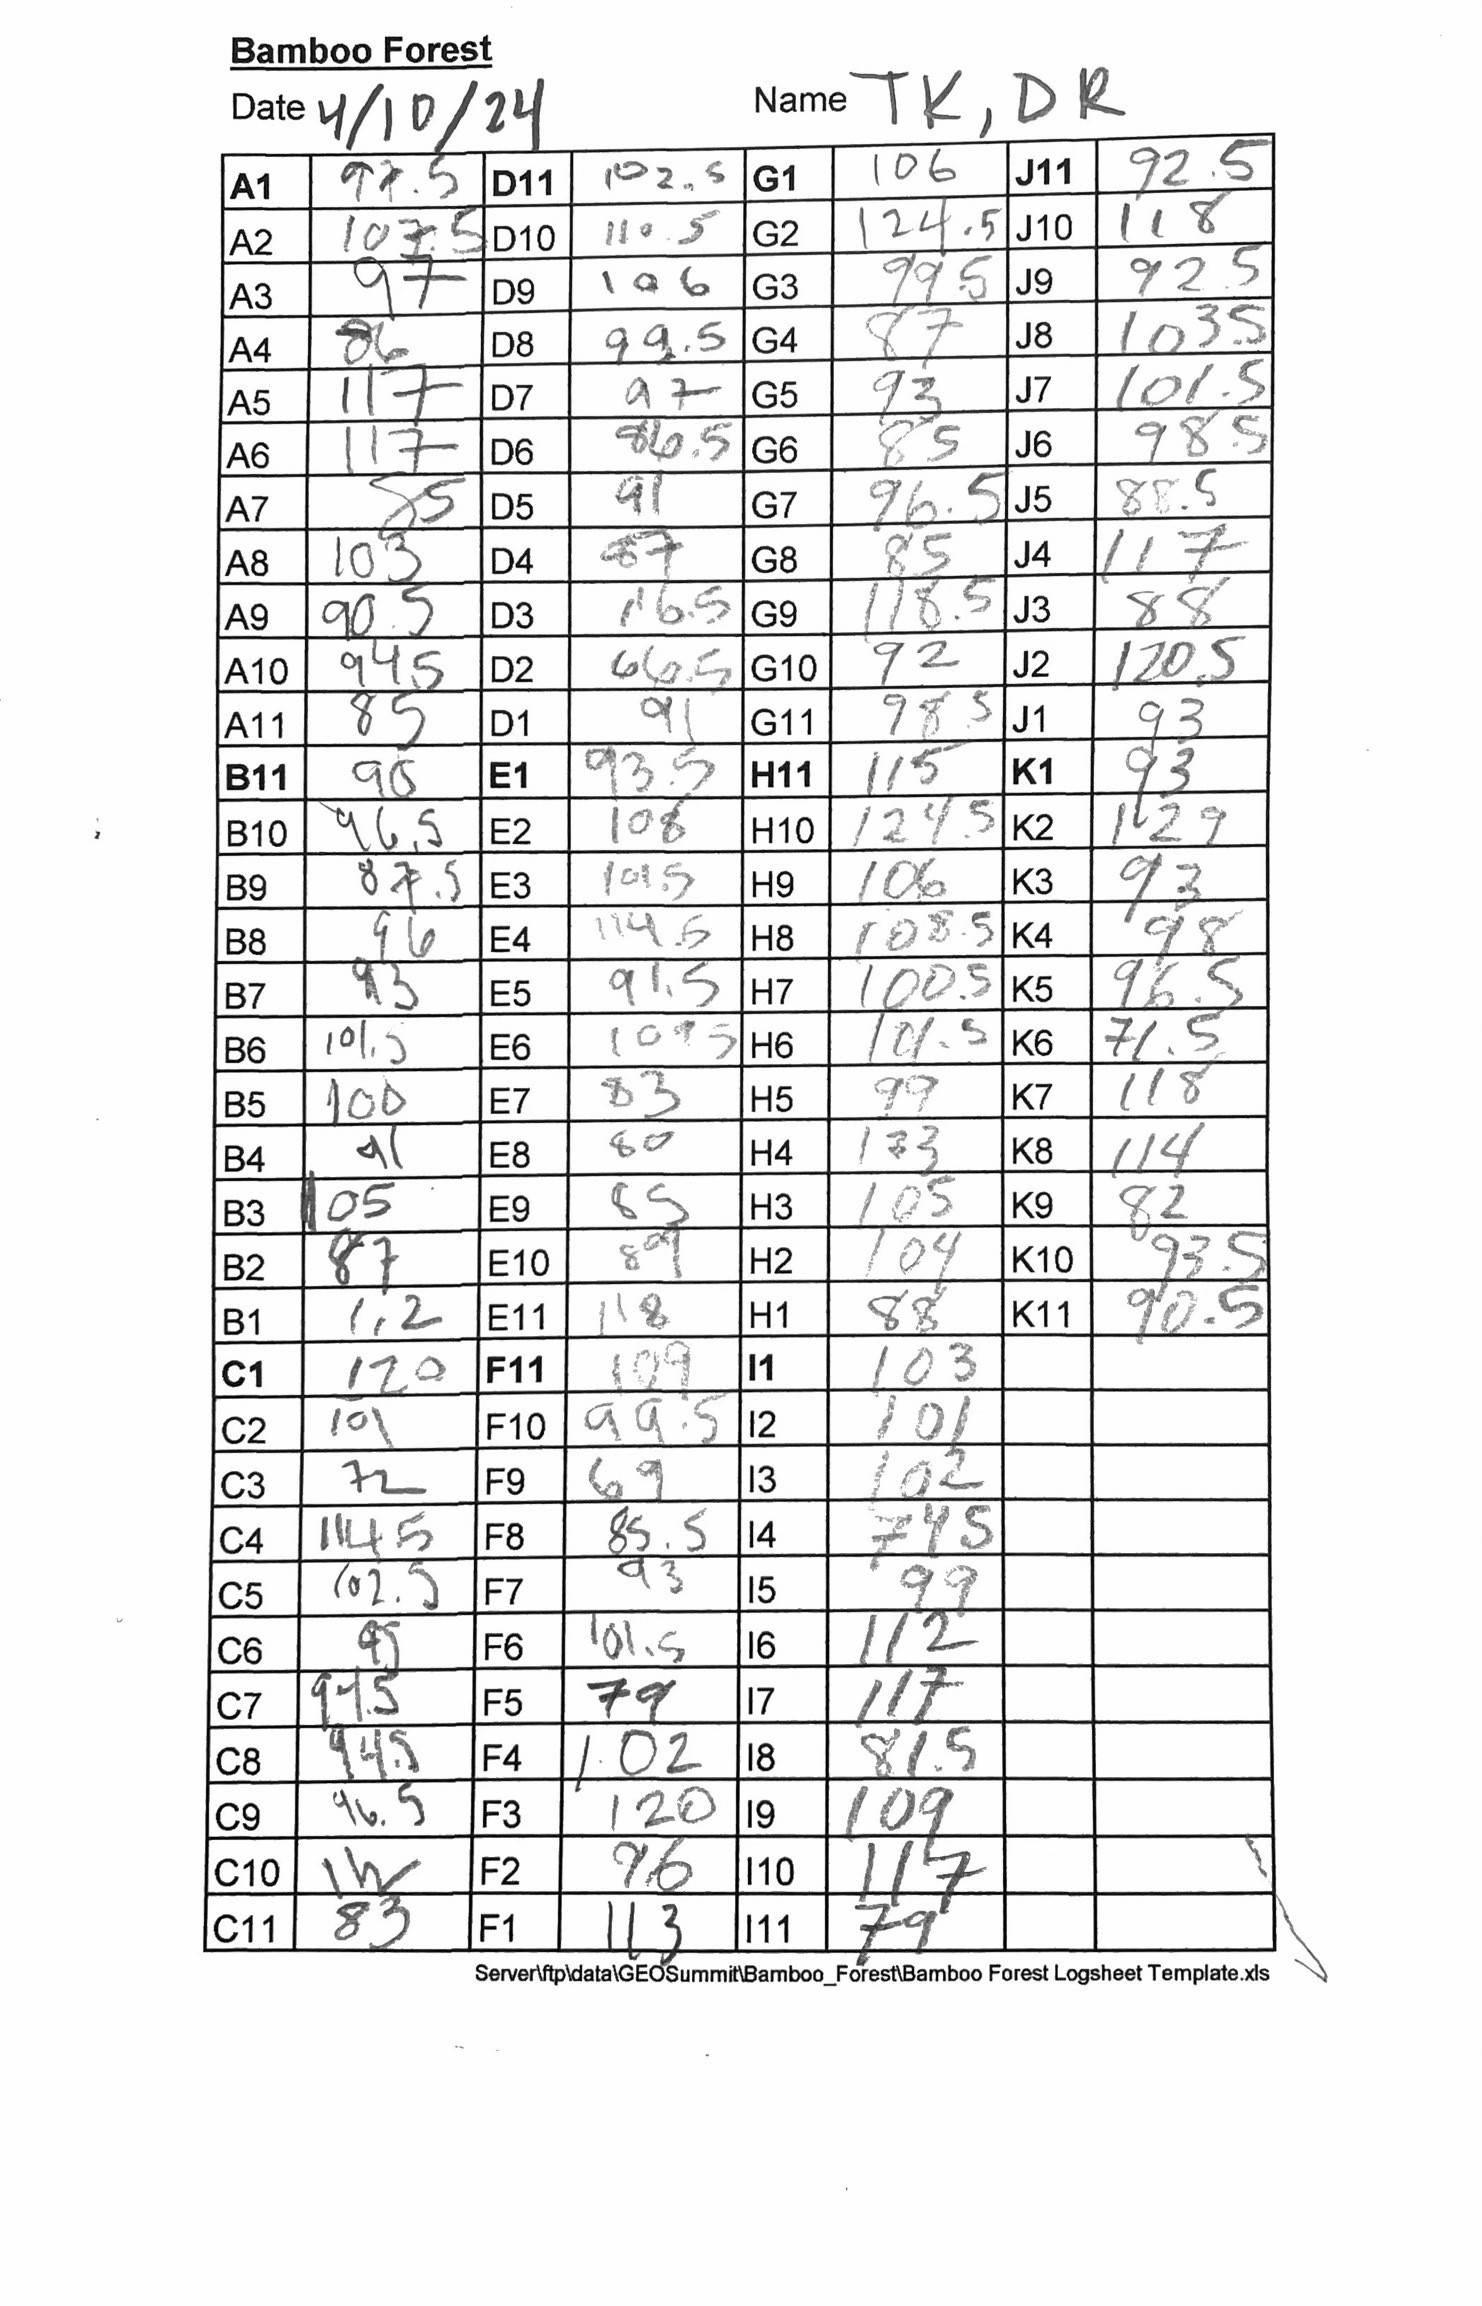 Bamboo Forest
Date 4/10/24 Name TK, DR
A1 97.5 D11 102.5 G1 106 J11 92.5
A2 107.5 D10 110.5 G2 124.5 J10 118
A3 97 D9 106 G3 99.5 J9 92.5
A4 86 D8 99.5 G4 87 J8 103.5
A5 117 D7 97 G5 93 J7 101.5
A6 117 D6 86.5 G6 85 J6 98.5
A7 85 D5 91 G7 96.5 J5 88.5
A8 103 D4 87 G8 85 J4 117
A9 90.5 D3 116.5 G9 118.5 J3 88
A10 94.5 D2 66.5 G10 92 J2 120.5
A11 85 D1 91 G11 98.5 J1 93
B11 E1 93.5 H11 115 K1 93
B10 96.5 E2 108 H10 124.5 K2 129
B9 87.5 E3 101.5 H9 106 K3 93
B8 96 E4 114.5 H8 108.5 K4 98
B7 93 E5 91.5 H7 100.5 K5 96.5
B6 101.5 E6 109 5 H6 101.5 K6 71.5
B5 100 E7 83 H5 99 K7 118
B4 91 E8 80 H4 133 K8 114
B3 105 E9 85 H3 105 K9 82
B2 87 E10 89 H2 104 K10 93.5
B1 1,2 E11 118 H1 88 K11 90.5
C1 120 F11 109 I1 103
C2 101 F10 99.5 I2 101
C3 72 F9 69 I3 102
C4 114.5 F8 85.5 I4 74.5
C5 102.5 F7 93 I5 99
C6 95 F6 101.5 I6 112
C7 F5 79 I7 117
C8 94.5 F4 102 I8 81.5
C9 96.5 F3 120 I9 109
C10 F2 96 I10 117
C11 83 F1 113 I11 79
Server\ftp\data\GEOSummit\Bamboo_Forest\Bamboo Forest Logsheet Template.xls